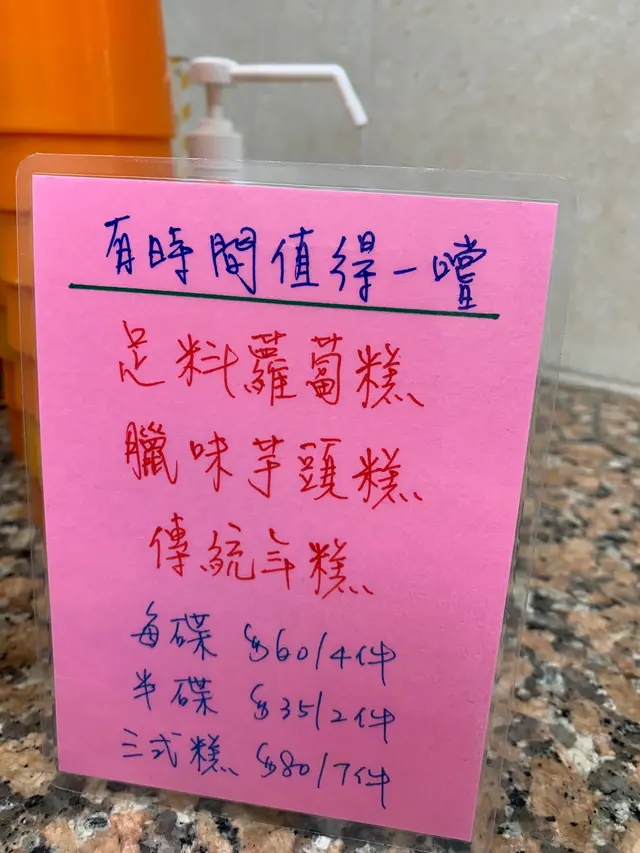 有時間值得一嚐
足料蘿蔔糕
臘味芋頭糕
傳統年糕
每碟 $60/4件
半碟 $35/2件
三式糕 $80/7件